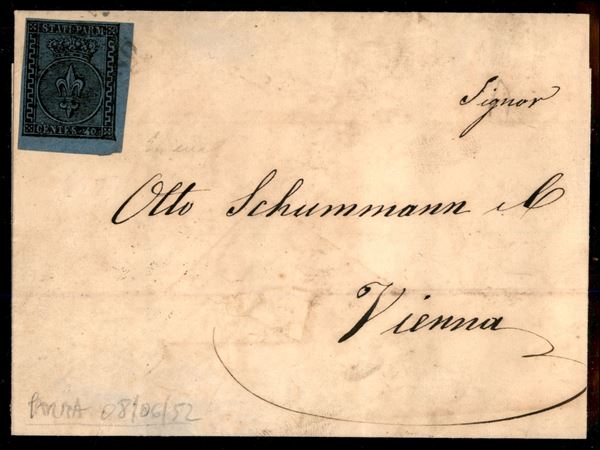 STATI PARM.
CENTES. 40
Signor
Otto Schummann
Vienna
PARMA 08/06/52